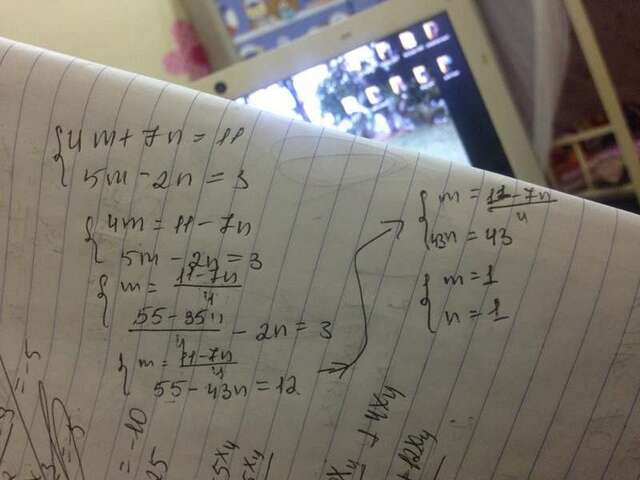 4m + 7n = 11
5m - 2n = 3
4m = 11 - 7n
5m - 2n = 3
m = (11 - 7n)/4
(55 - 35n)/4 - 2n = 3
m = (11 - 7n)/4
55 - 43n = 12
m = (11 - 7n)/4
43n = 43
m = 1
n = 1
= -5
= -10
+ 4xy
+ 12xy